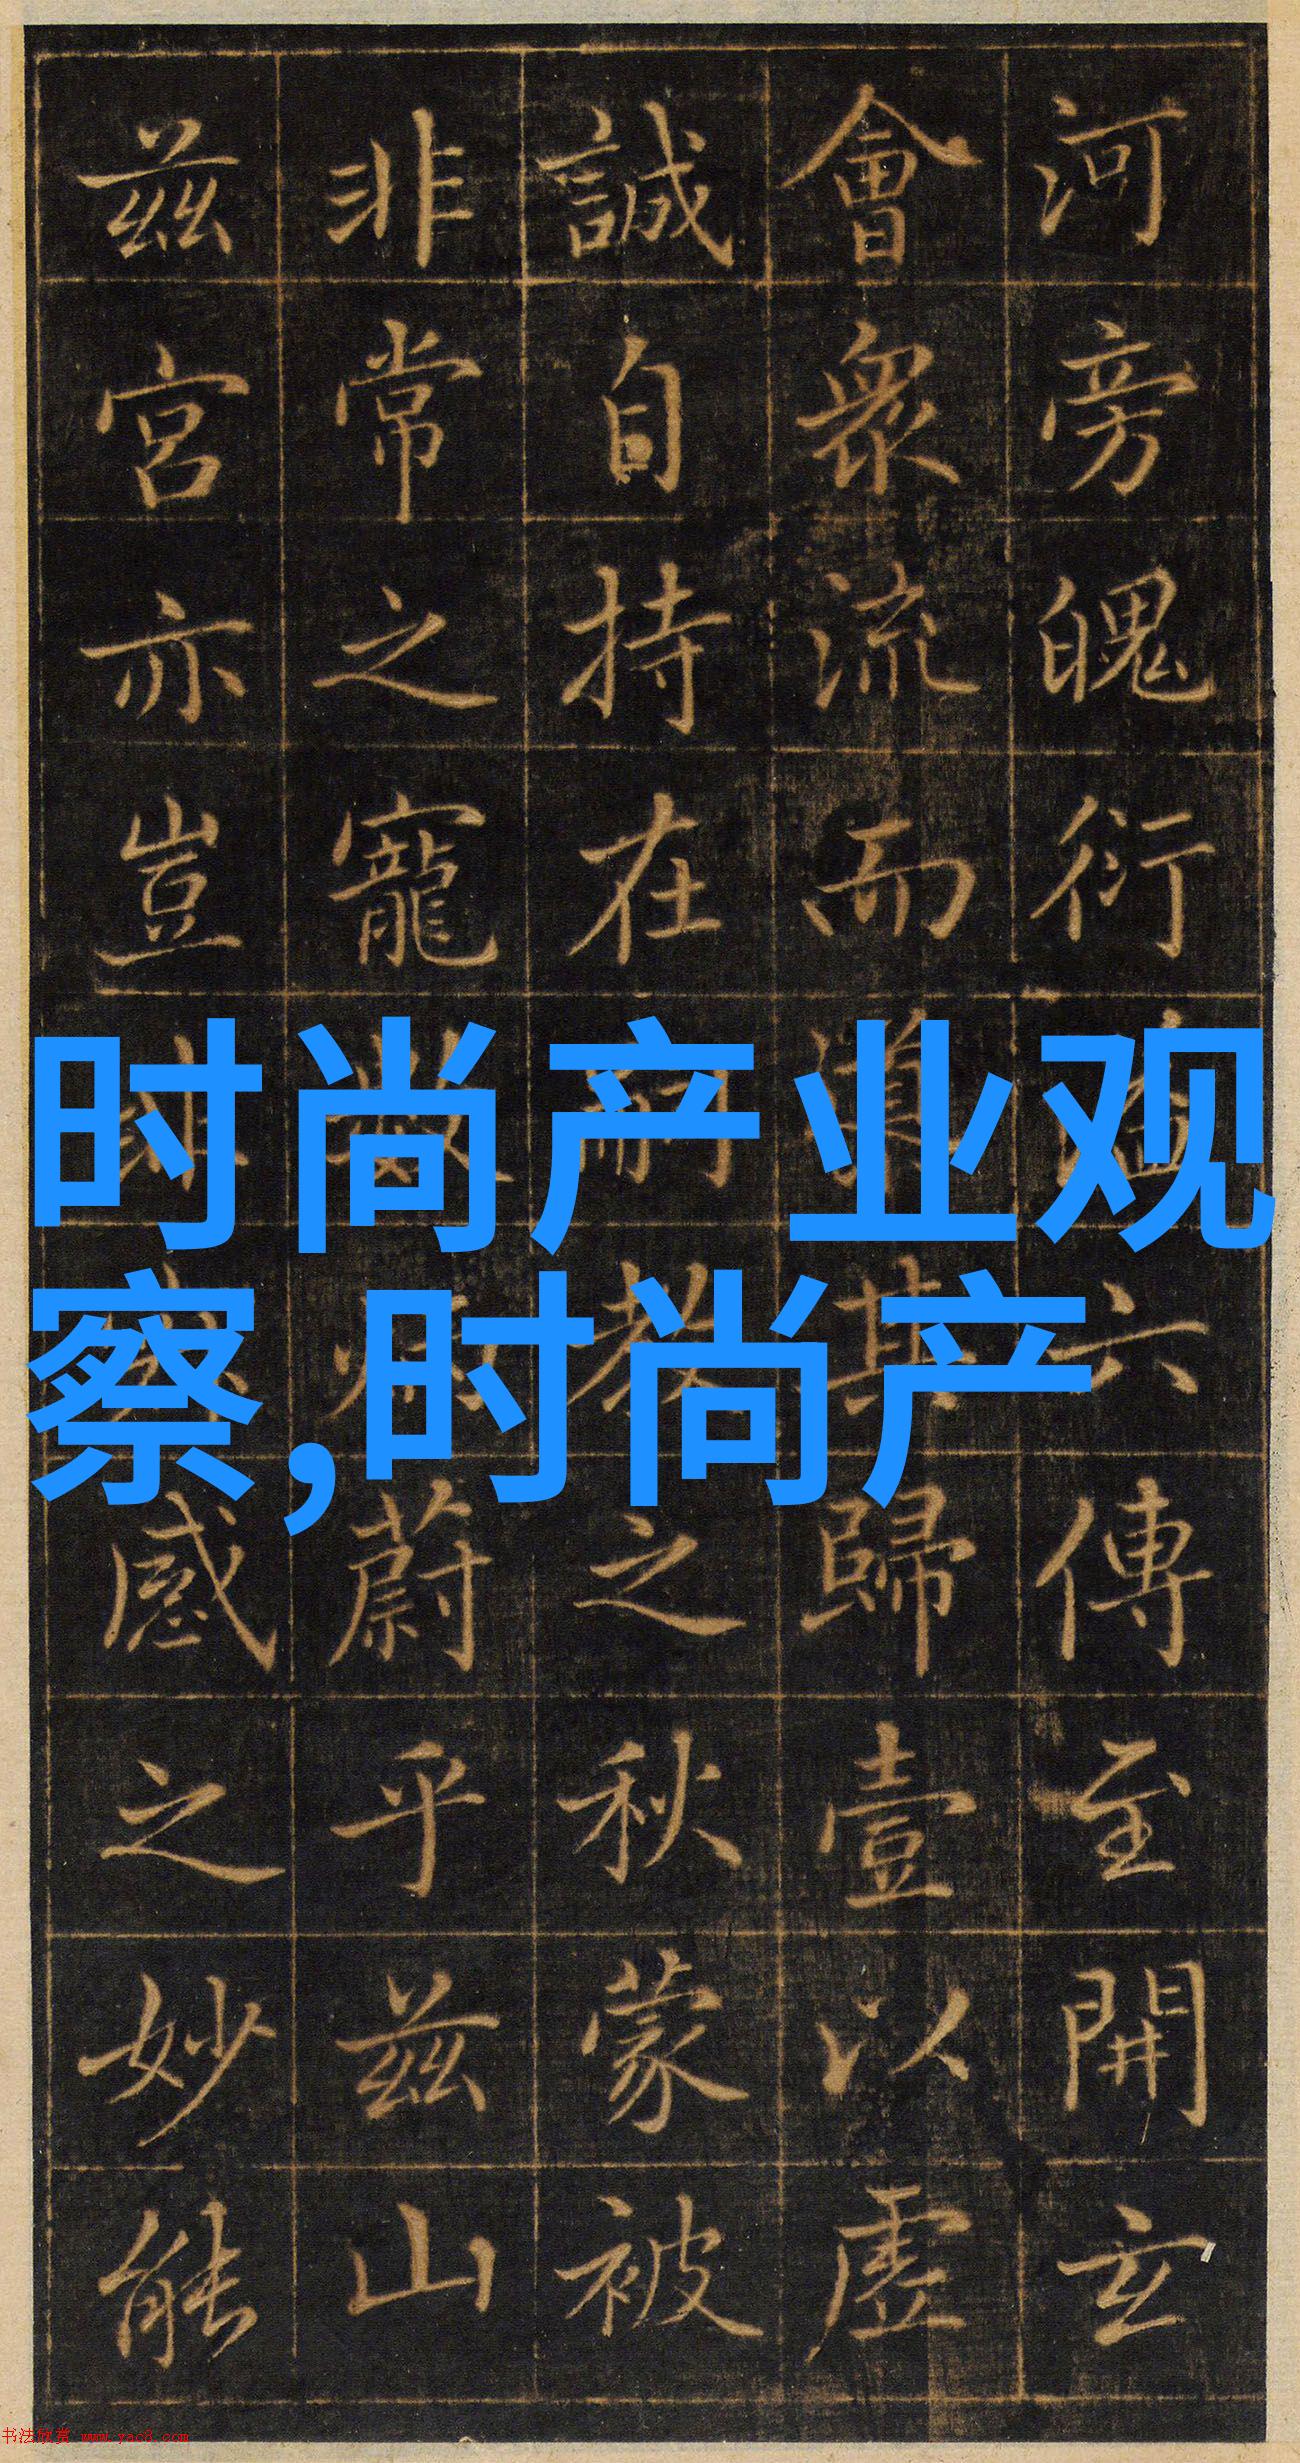 河旁魄衍六傳至開玄
會衆流而其歸壹以虛
誠自持在教之秋蒙被
非常之寵蔚乎兹山
兹宮亦豈感之妙能
时尚产业观
察,时尚产
书法欣赏 www.yac8.com